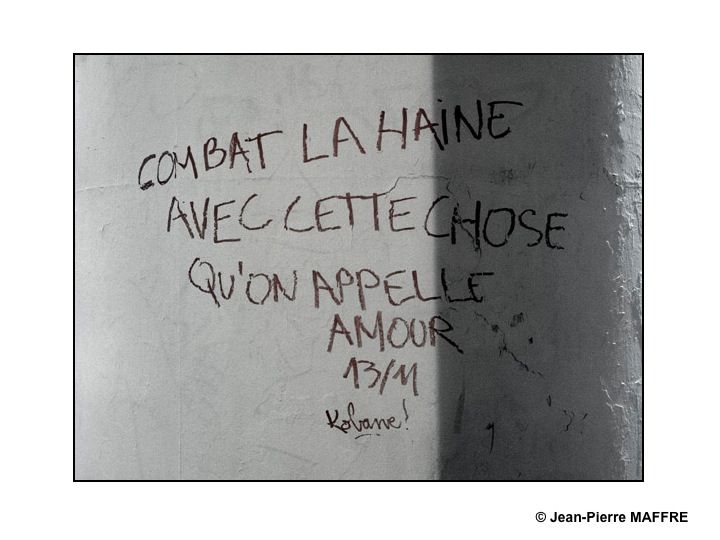 COMBAT LA HAiNE
AVEC CETTE CHOSE
QU'ON APPELLE
AMOUR
13/11
Kobane!
© Jean-Pierre MAFFRE